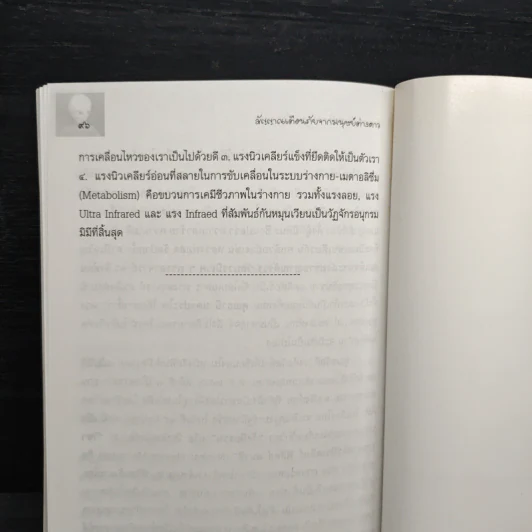 ๙๖
สัญญาณเตือนภัยจากมนุษย์ต่างดาว
การเคลื่อนไหวของเราเป็นไปด้วยดี ๓. แรงนิวเคลียร์แข็งที่ยึดติดให้เป็นตัวเรา
๔. แรงนิวเคลียร์อ่อนที่สลายในการขับเคลื่อนในระบบร่างกาย-เมตาอลิซึ่ม
(Metabolism) คือขบวนการเคมีชีวภาพในร่างกาย รวมทั้งแรงลอย, แรง
Ultra Infrared และ แรง Infraed ที่สัมพันธ์กันหมุนเวียนเป็นวัฏจักรอนุกรม
มิมีที่สิ้นสุด